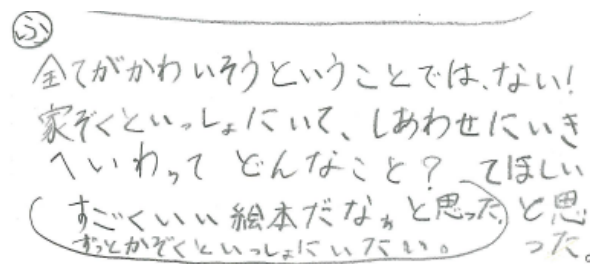 ふ
全てがかわいそうということでは、ない!
家ぞくといっしょにいて、しあわせにいき
へいわって どんなこと? てほしい
すごくいい絵本だなぁと思った。 と思
ずっとかぞくといっしょにいたい。 った。